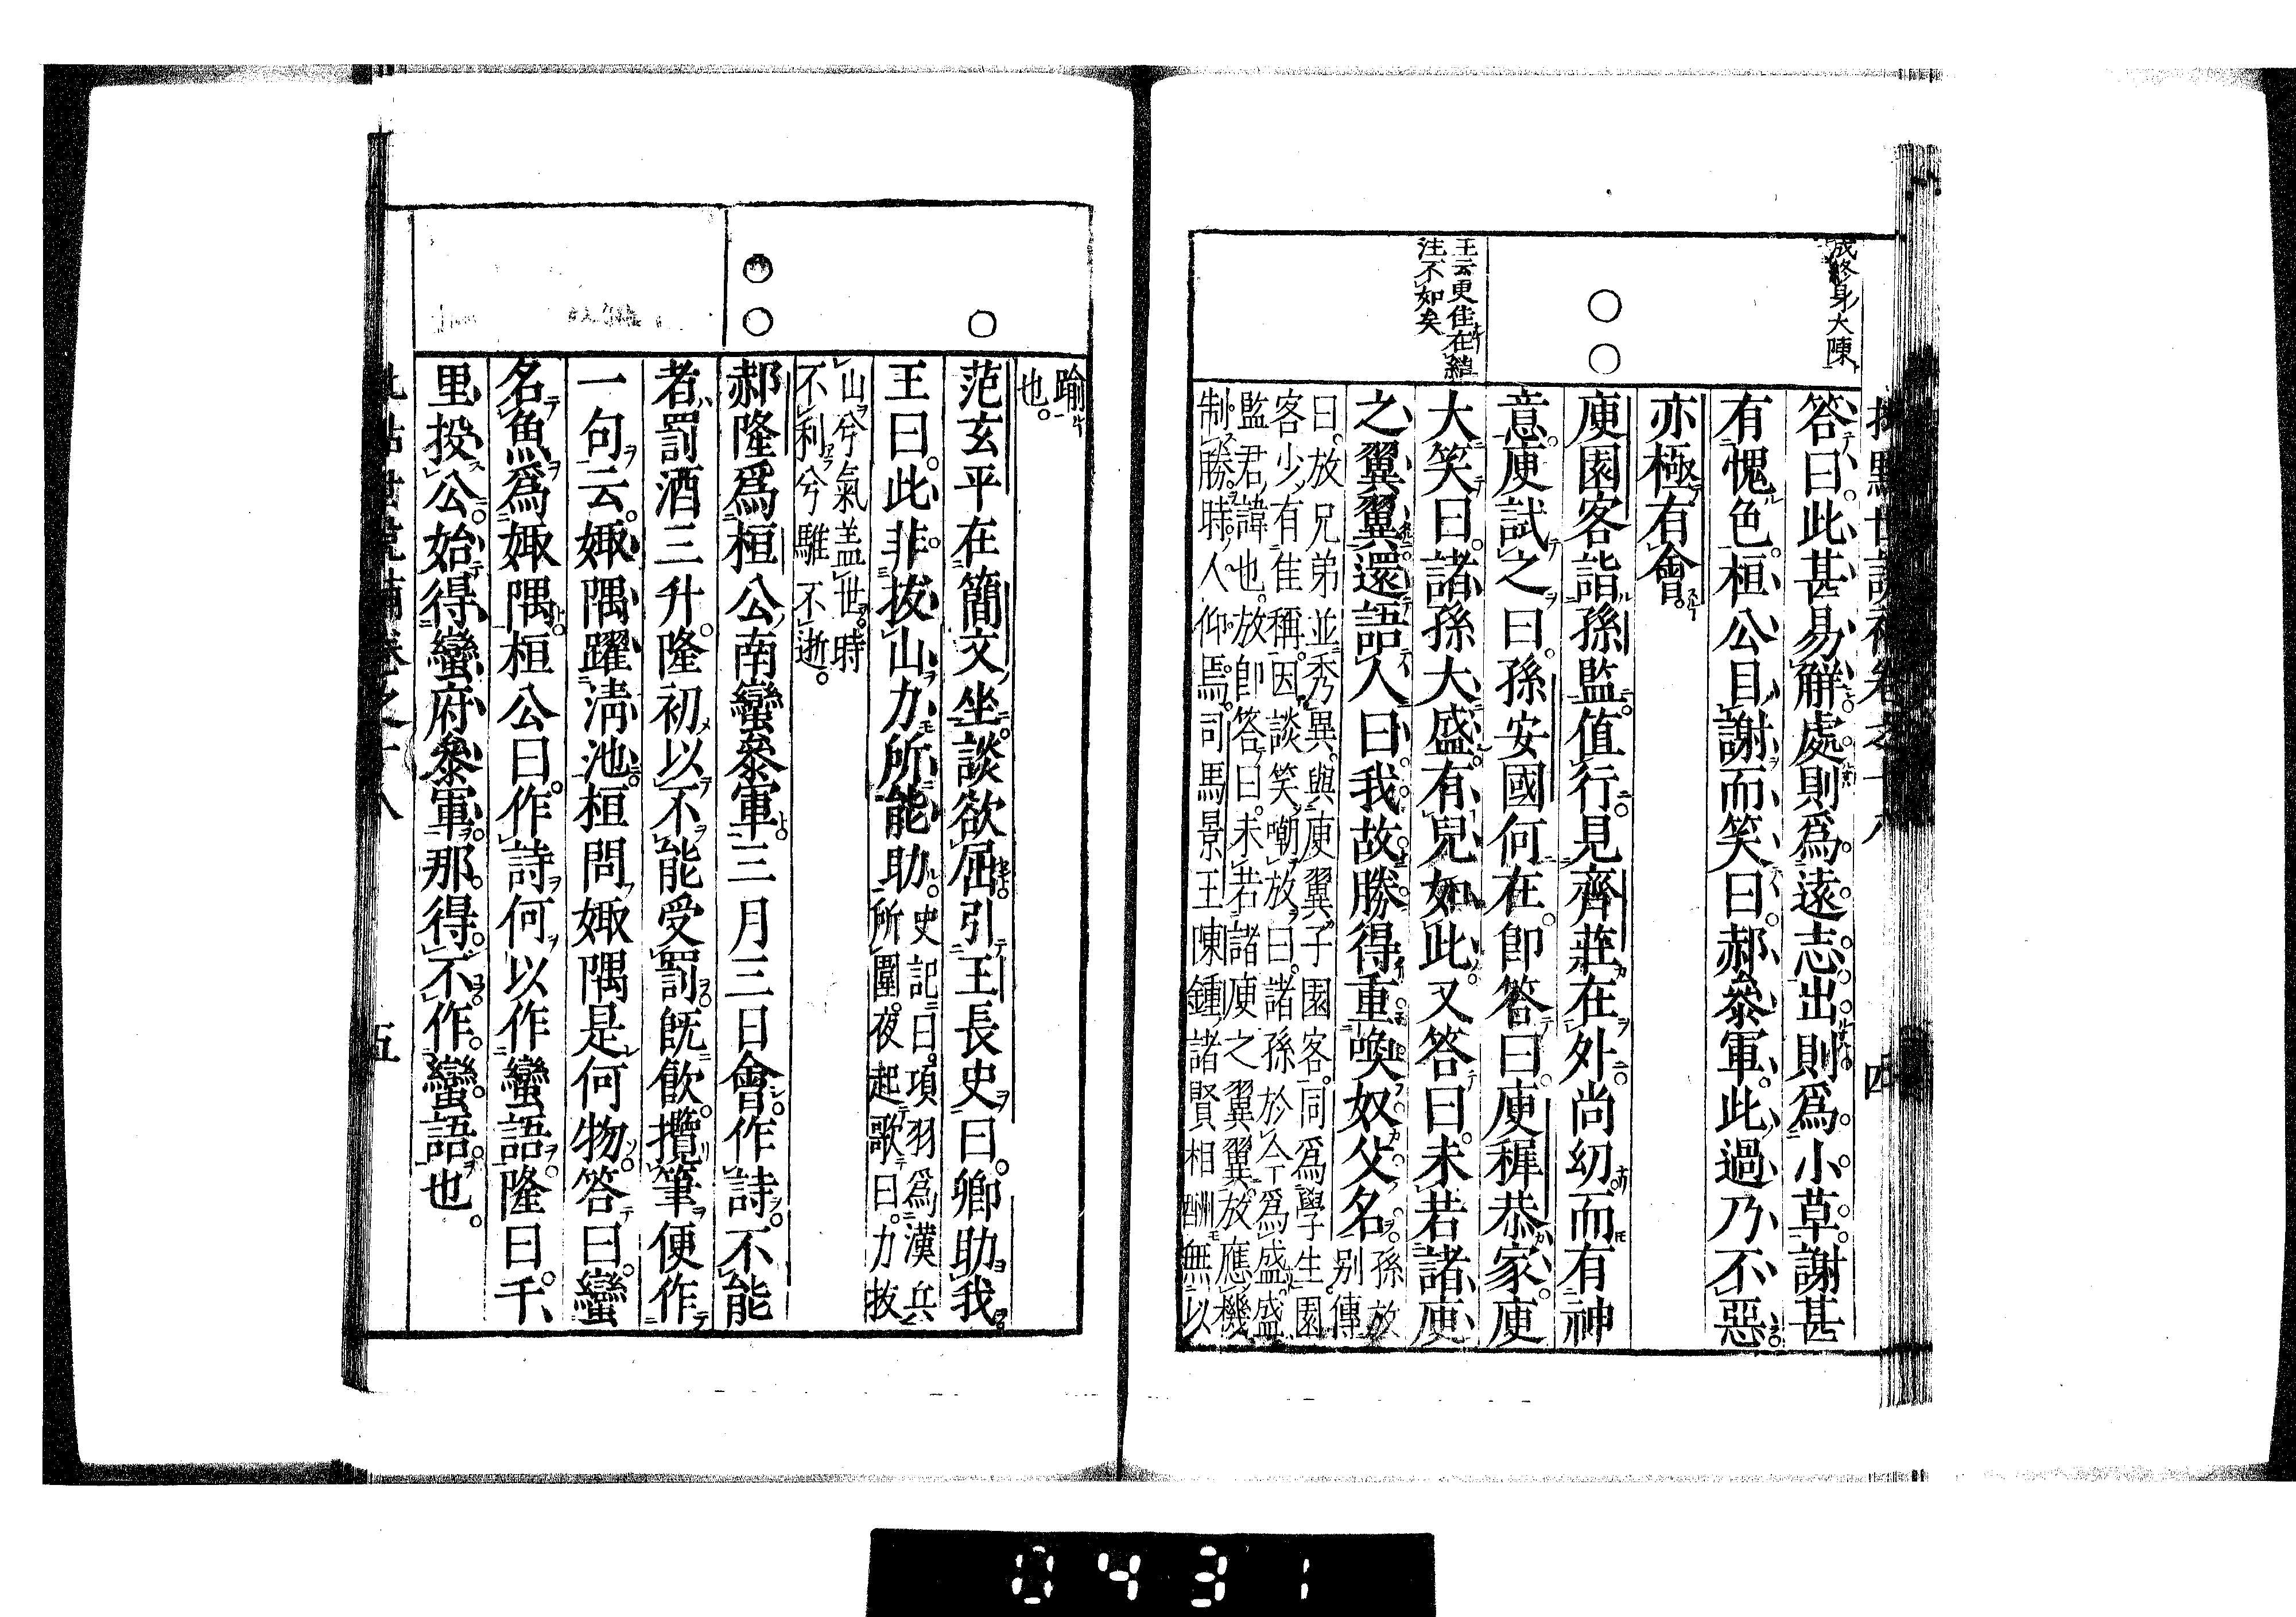 成終身大陳
王云更佳在結
注不如矣
答曰此甚易解處則為遠志出則為小草謝甚
有愧色桓公目謝而笑曰郝叅軍此過乃不惡
亦極有會
庾園客詣孫監値行見齊莊在外尚幼而有神
意庾試之曰孫安國何在卽答曰庾穉恭家庾
大笑曰諸孫大盛有兒如此又答曰未若諸庾
之翼翼還語人曰我故勝得重喚奴父名
孫放
别傳
曰放兄弟並秀異與庾翼子園客同為學生園
客少有佳稱因談笑嘲放曰諸孫於今為盛盛
監君諱也放卽答曰未若諸庾之翼翼放應機
制勝時人仰焉司馬景王陳鍾諸賢相酬無以
四
踰
也
范玄平在簡文坐談欲屈引王長史曰卿助我
王曰此非拔山力所能助
史記曰項羽為漢兵
所圍夜起歌曰力拔
山兮氣盖世時
不利兮騅不逝
郝隆爲桓公南蠻叅軍三月三日會作詩不能
者罰酒三升隆初以不能受罰旣飮攬筆便作
一句云娵隅躍淸池桓問娵隅是何物答曰蠻
名魚爲娵隅桓公曰作詩何以作蠻語隆曰千
里投公始得蠻府叅軍那得不作蠻語也
五
0431